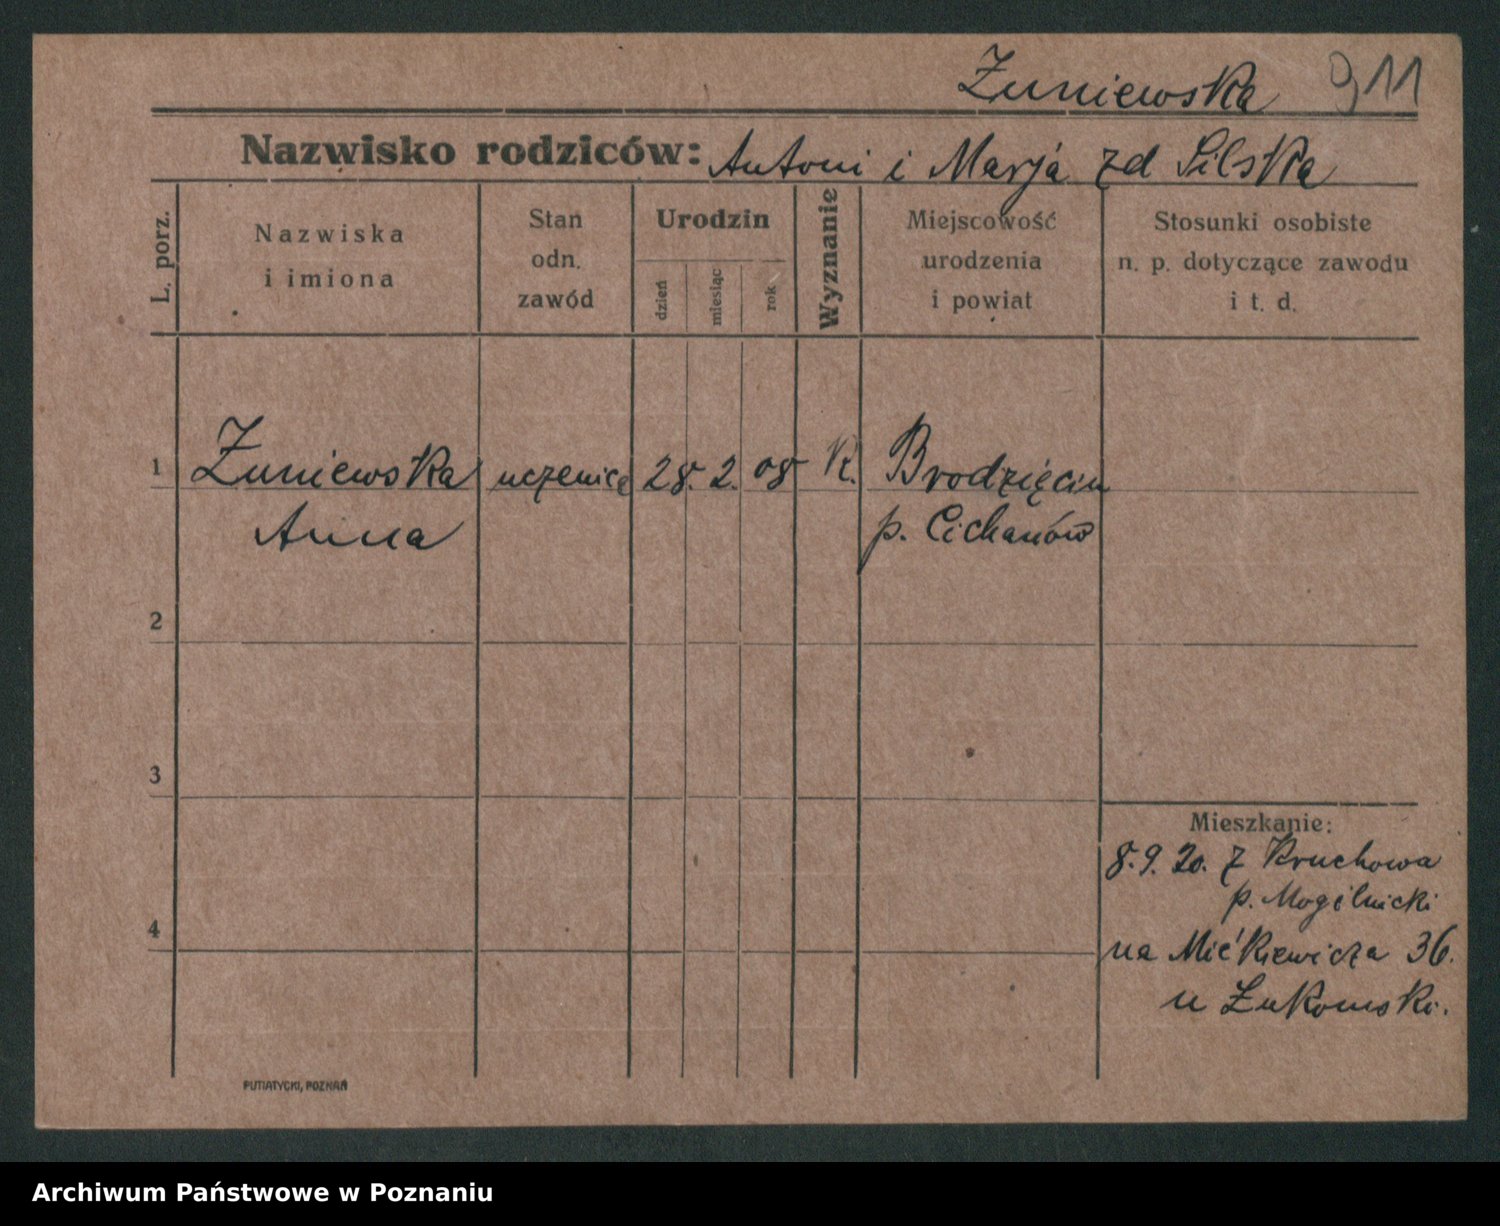 Żuniewska 911
Nazwisko rodziców: Antoni i Marja zd Silska
L. porz.
Nazwiska
i imiona
Stan
odn.
zawód
Urodzin
dzień
miesiąc
rok
Wyznanie
Miejscowość
urodzenia
i powiat
Stosunki osobiste
n. p. dotyczące zawodu
i t. d.
1 Żuniewska uczenica 28. 2. 08 K. Brodzięcin
Anna p. Cichanów
2
3
4
Mieszkanie:
8.9.20. z Kruchowa
p. Mogilnicki
na Mićkiewicza 36.
u Łukomski.
PUTIATYCKI, POZNAŃ
Archiwum Państwowe w Poznaniu